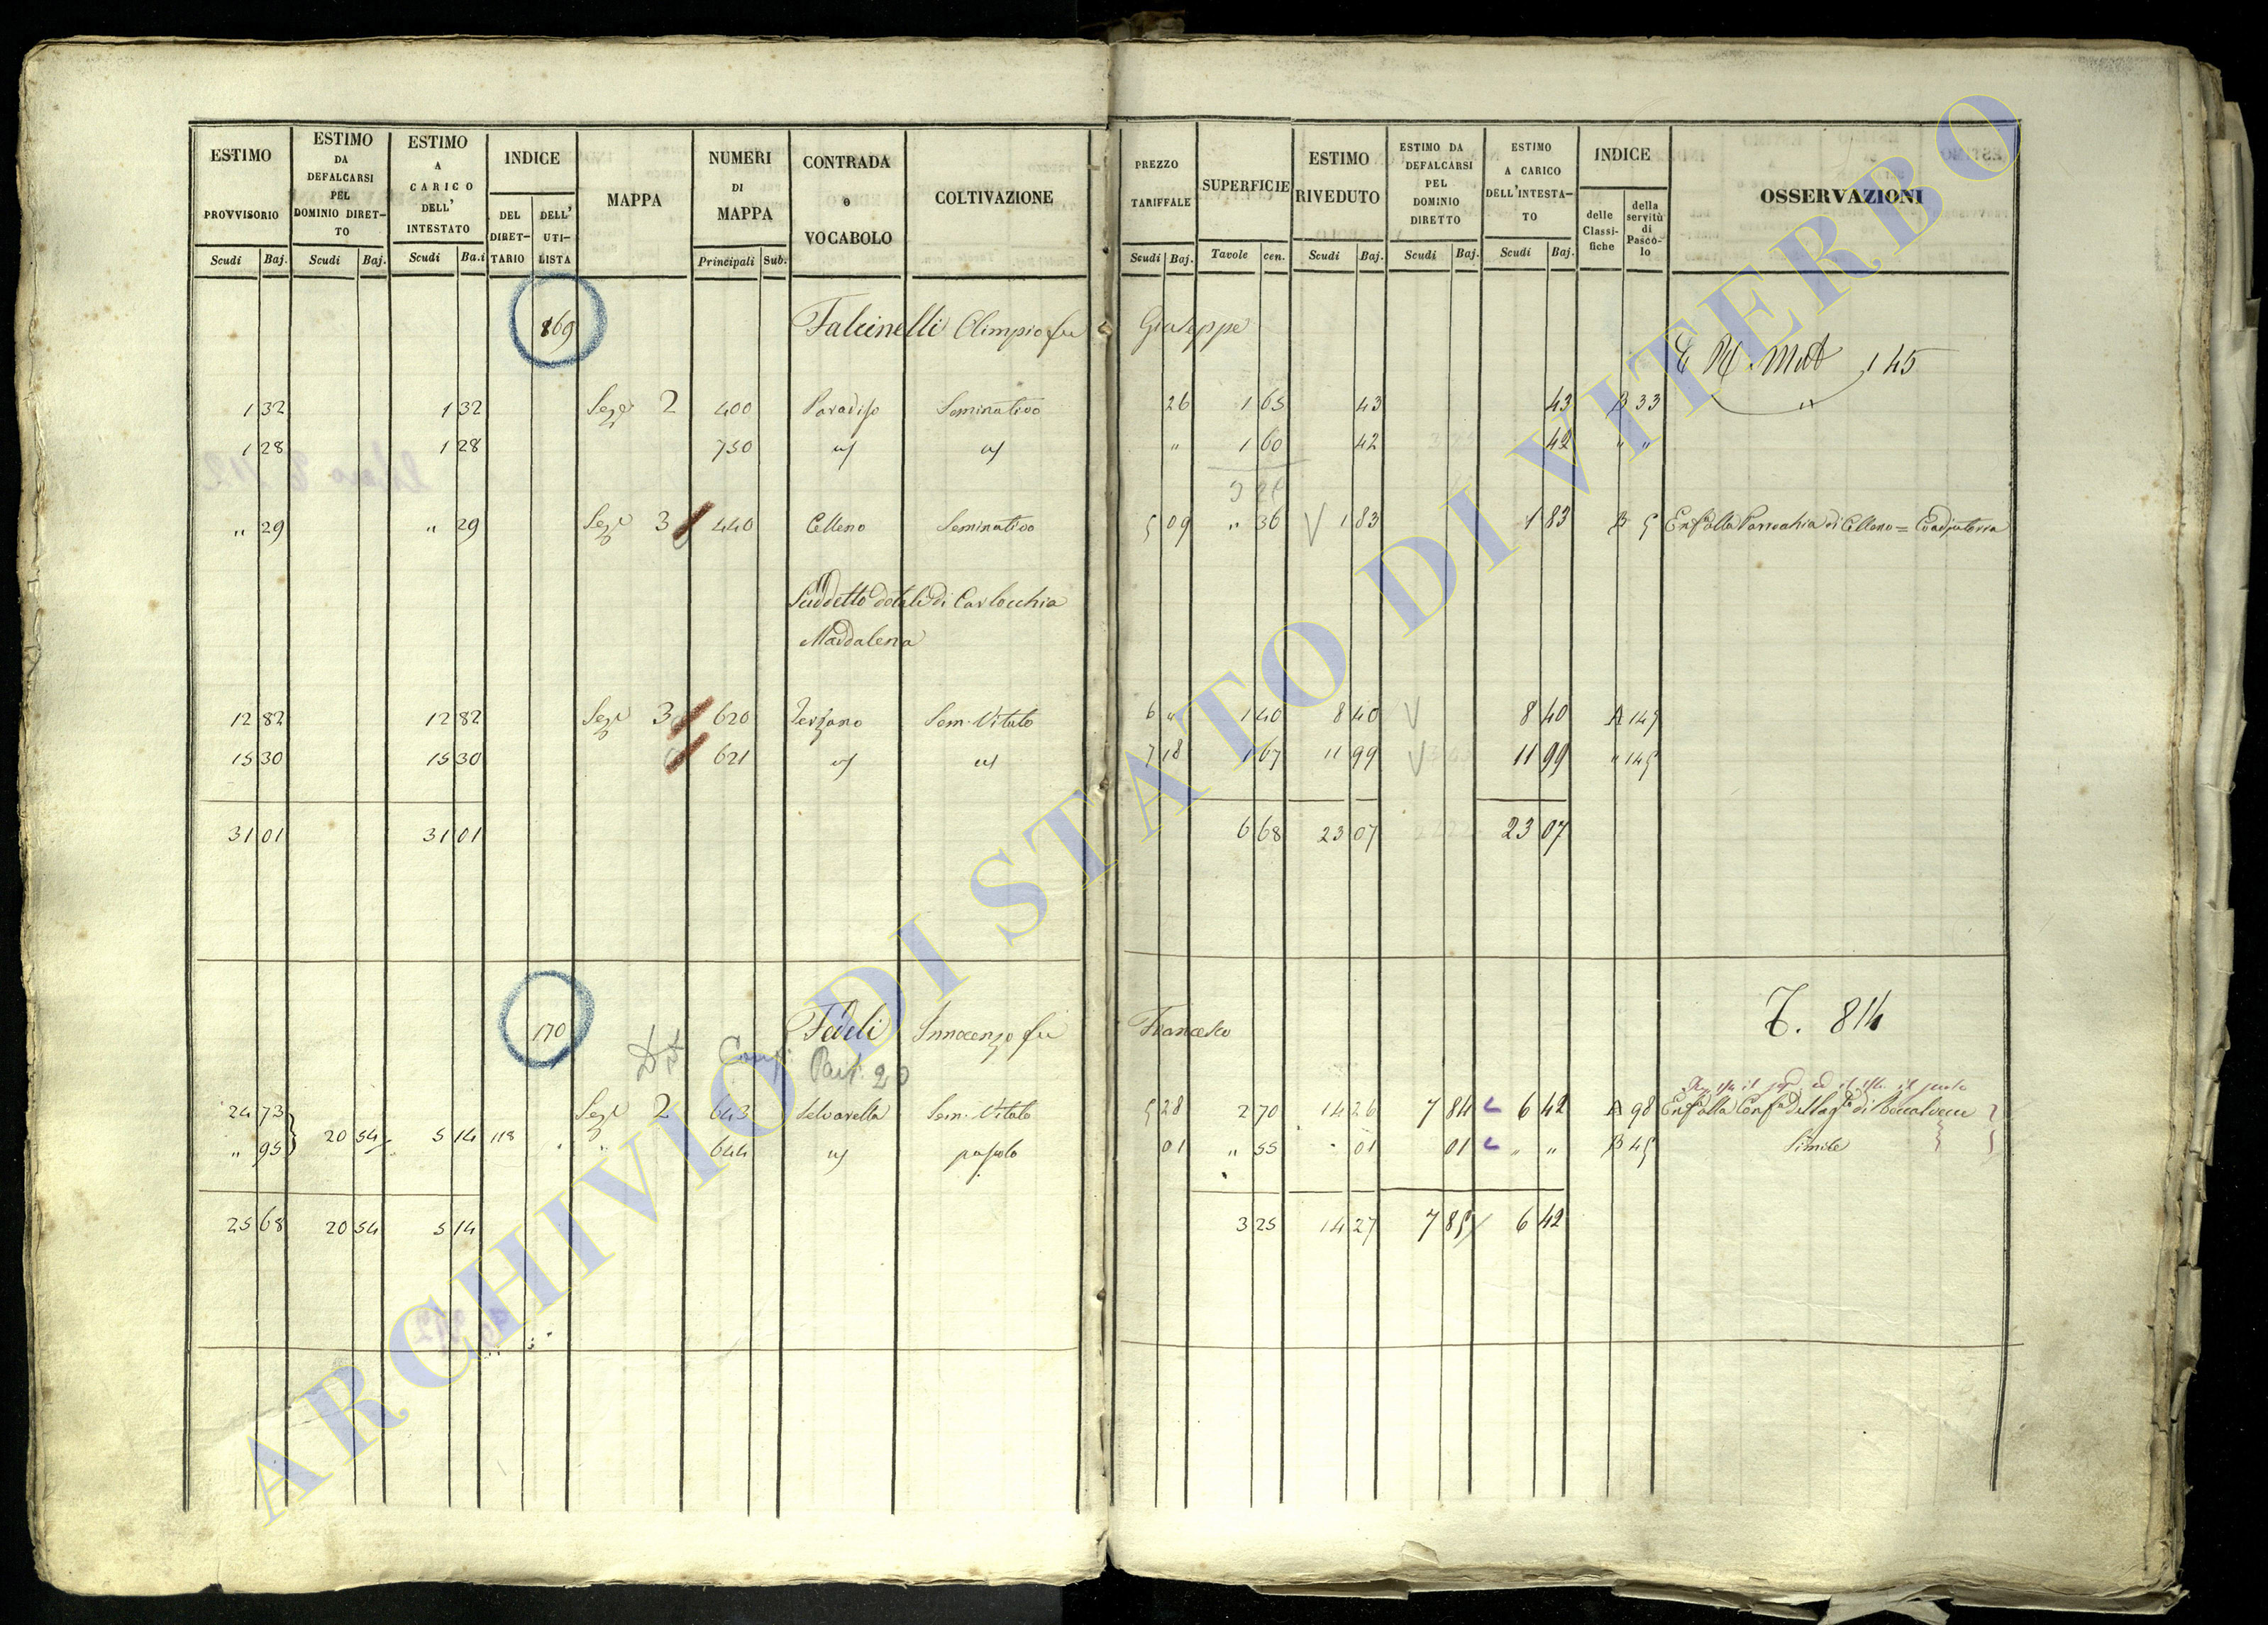 ESTIMO PROVVISORIO | ESTIMO DA DEFALCARSI PEL DOMINIO DIRET-TO | ESTIMO A CARICO DELL' INTESTATO | INDICE | MAPPA | NUMERI DI MAPPA | CONTRADA o VOCABOLO | COLTIVAZIONE | PREZZO TARIFFALE | SUPERFICIE | ESTIMO RIVEDUTO | ESTIMO DA DEFALCARSI PEL DOMINIO DIRETTO | ESTIMO A CARICO DELL'INTESTA-TO | INDICE | OSSERVAZIONI
DEL DIRET-TARIO | DELL' UTI-LISTA | delle Classi-fiche | della servitù di Pasco-lo
Scudi | Baj. | Scudi | Baj. | Scudi | Ba.i | Principali | Sub. | Scudi | Baj. | Tavole | cen. | Scudi | Baj. | Scudi | Baj. | Scudi | Baj.
169 Falcinelli Olimpio fu Giuseppe
145
1 32 | 1 32 | Sez.e 2 | 400 | Paradiso | Seminativo | 26 | 1 65 | 43 | 43 | B 33 | "
1 28 | 1 28 | 750 | " | 1 60 | 42 | 42 | " "
3 25
" 29 | " 29 | Sez.e 3 | 440 | Celleno | Seminativo | 5 09 | " 36 | 1 83 | 1 83 | B 5 | Enf. alla Parrochia di Celleno = Coadjutoria
Suddetto dotale di Carlocchia
Maddalena
12 82 | 12 82 | Sez.e 3 | 620 | Terzano | Sem. Vitato | 6 " | 1 40 | 8 40 | 8 40 | A 145
15 30 | 15 30 | 621 | 7 18 | 1 67 | 11 99 | 11 99 | " 145
31 01 | 31 01 | 6 68 | 23 07 | 23 07
170 Fedeli Innocenzo fu Francesco
T. 814
Part. 20
24 73 | Sez.e 2 | 643 | Selvarella | Sem. Vitato | 5 28 | 2 70 | 14 26 | 7 84 | 6 42 | A 98
" 95 | 20 54 | 5 14 | 118 | " | 644 | pascolo | 01 | " 55 | 01 | 01 | " " | B 45 | Simile
25 68 | 20 54 | 5 14 | 3 25 | 14 27 | 7 85 | 6 42
ARCHIVIO DI STATO DI VITERBO